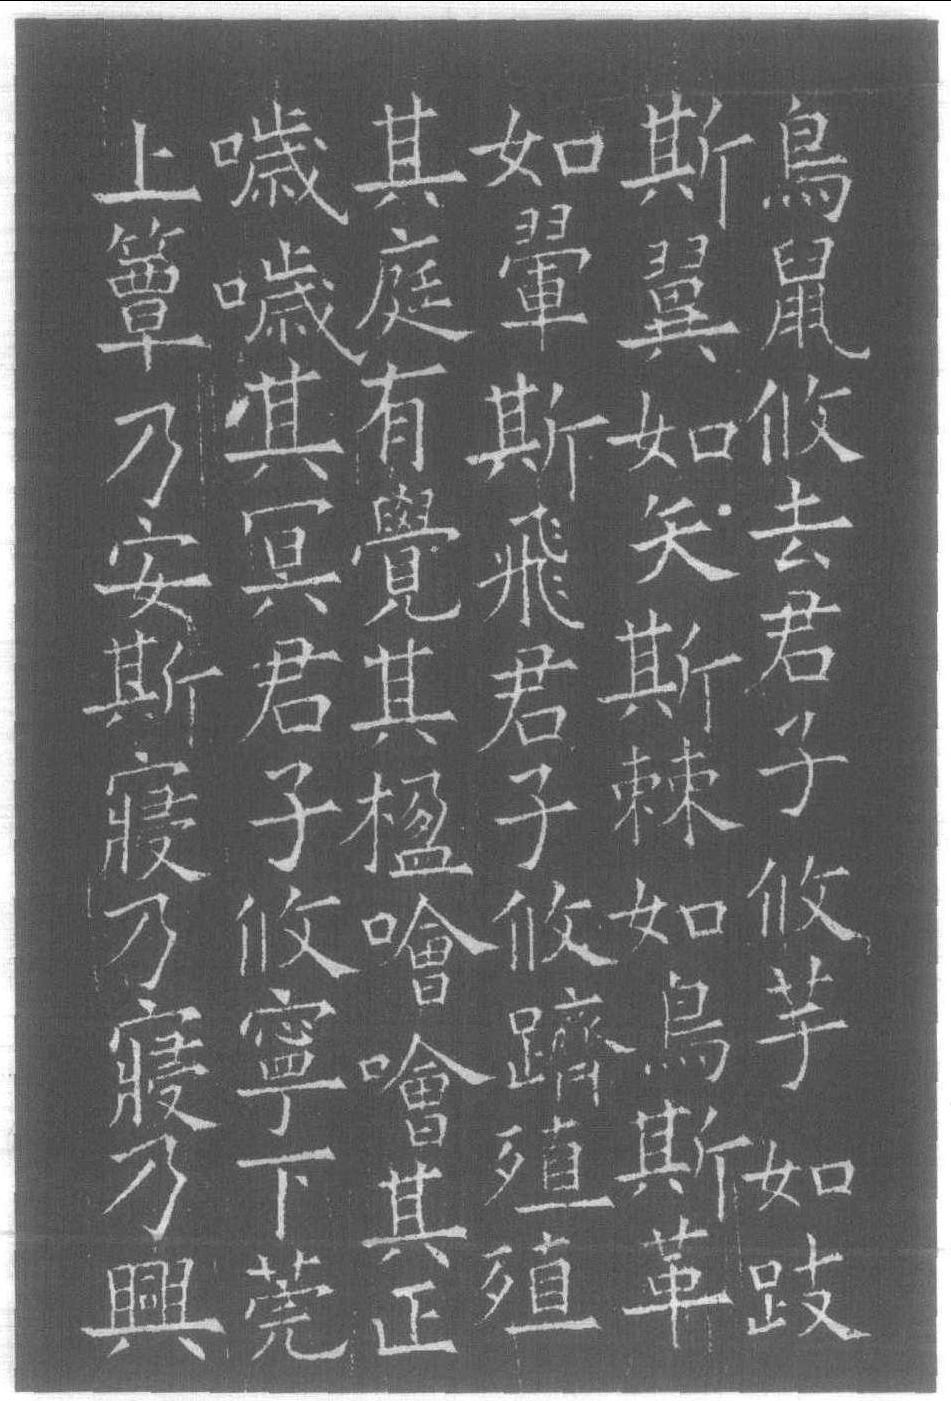 鳥鼠攸去君子攸芋如跂
斯翼如矢斯棘如鳥斯革
如翬斯飛君子攸躋殖殖
其庭有覺其楹噲噲其正
噦噦其冥君子攸寧下莞
上簟乃安斯寢乃寢乃興